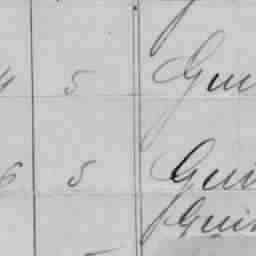 4 5 Gui
6 5 Gui
Gui